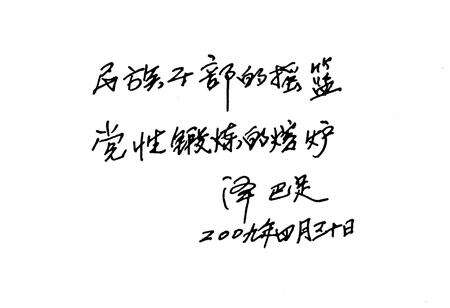 民族干部的摇篮
党性锻炼的熔炉
泽巴足
二00九年四月三十日